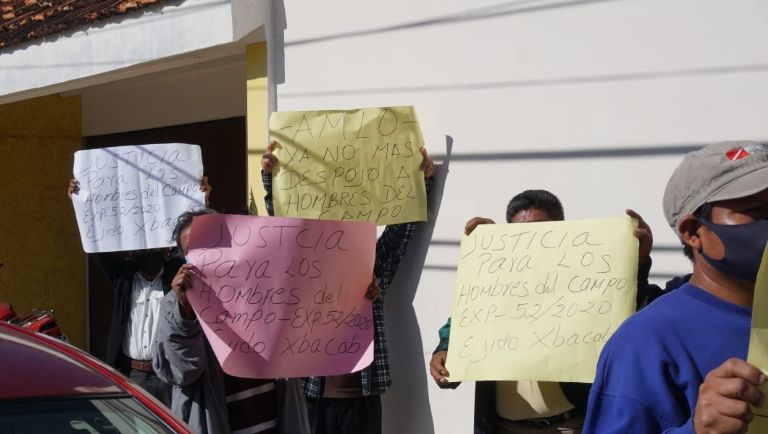 JUSTICIA
Para LOS
Hombres del Campo
EXP-52/2020
Ejido Xbacab
-AMLO-
YA NO MAS
DESPOJO A
HOMBRES DEL
CAMPO
JUSTCIA
Para LOS
Hombres del
Campo-EXP-52/2020
Ejido Xbacab
JUSTICIA
Para LOS
Hombres del Campo
EXP-52/2020
Ejido Xbacab